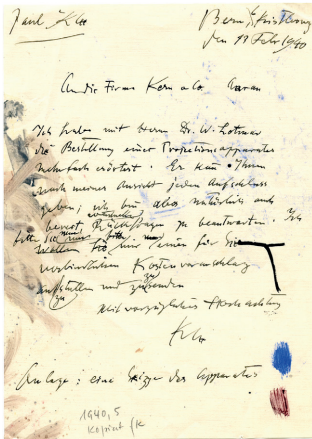 Paul Klee Bern Kistlerweg
den 11 Febr 1940
An die Firma Kern & Co. Aarau
Ich habe mit Herrn Dr. W. Lotmar
die Bestellung eines Projectionsapparates
mehrfach erörtert. Er kann Ihnen
nach meiner Ansicht jeden Aufschluss
geben; ich bin aber natürlich auch
bereit, eventuelle Rückfragen zu beantworten. Ich
bitte Sie mir einen für Sie
verbindlichen Kostenvoranschlag
aufzustellen und zuzusenden
Mit vorzüglicher Hochachtung
Klee
Anlage: eine Skizze des Apparates
1940,5
Kopiert /K